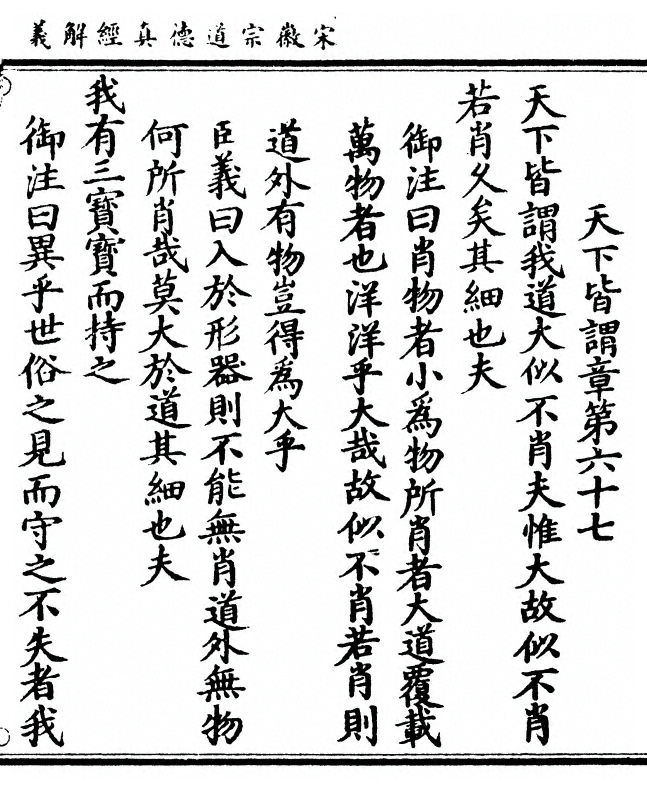 宋徽宗道德真經解義
天下皆謂章第六十七
天下皆謂我道大似不肖夫惟大故似不肖
若肖久矣其細也夫
御注曰肖物者小為物所肖者大道覆載
萬物者也洋洋乎大哉故似不肖若肖則
道外有物豈得為大乎
臣義曰入於形器則不能無肖道外無物
何所肖哉莫大於道其細也夫
我有三寶寶而持之
御注曰異乎世俗之見而守之不失者我